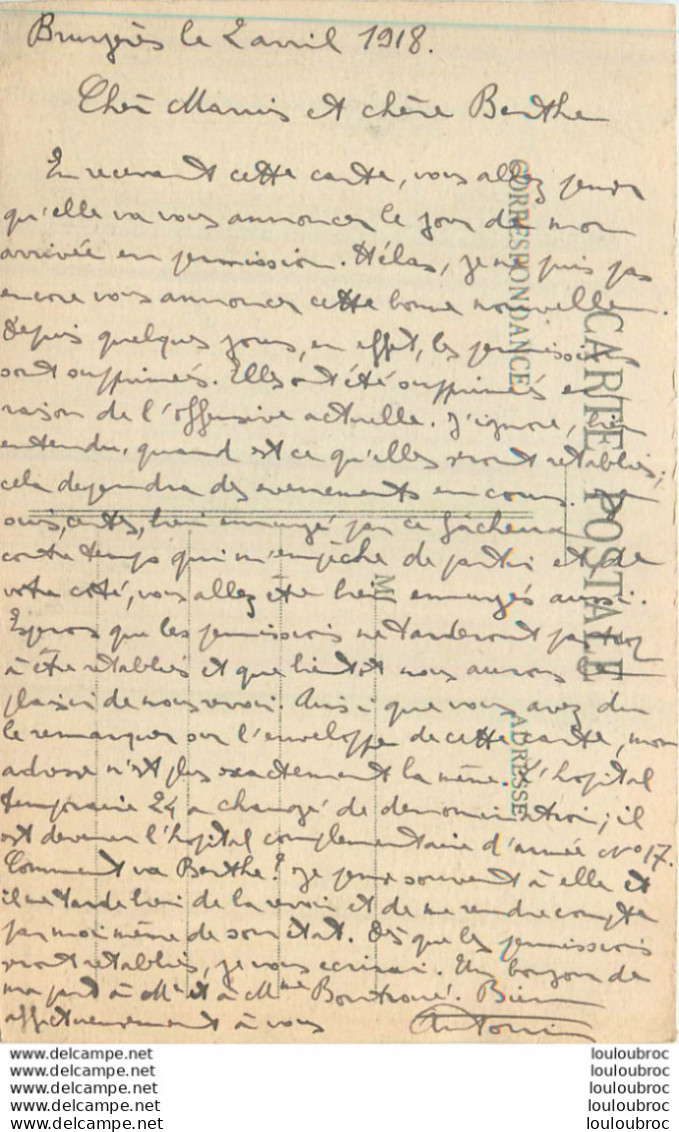 Bruyères le 2 avril 1918.
Cher Marius et chère Berthe
En recevant cette carte, vous allez penser
qu'elle va vous annoncer le jour de mon
arrivée en permission. Hélas, je ne puis pas
encore vous annoncer cette bonne nouvelle.
Depuis quelques jours, en effet, les permissions
sont supprimées. Elles ont été supprimées en
raison de l'offensive actuelle. J'ignore, bien
entendu, quand est ce qu'elles seront rétablies;
cela dépendra des évènements en cours. Je
suis, certes, bien ennuyé par ce fâcheux
contre temps qui m'empêche de partir et, de
votre côté, vous allez être bien ennuyés aussi.
Espérons que les permissions ne tarderont pas trop
à être rétablies et que bientôt nous aurons
plaisir de nous revoir. Ainsi que vous avez du
le remarquer sur l'enveloppe de cette carte, mon
adresse n'est plus exactement la même. L'hopital
temporaire 24 a changé de dénomination; il
est devenu l'hopital complémentaire d'armée No 17.
Comment va Berthe? Je pense souvent à elle et
il me tarde bien de la revoir et de me rendre compte
par moi même de son état. Dès que les permissions
seront rétablies, je vous écrirai. Un bonjour de
ma part à Mr et à Mme Bontroué. Bien
affectueusement à vous Antonin
CARTE POSTALE
CORRESPONDANCE
ADRESSE
M
www.delcampe.net louloubroc
www.delcampe.net louloubroc
www.delcampe.net louloubroc
www.delcampe.net louloubroc
www.delcampe.net louloubroc